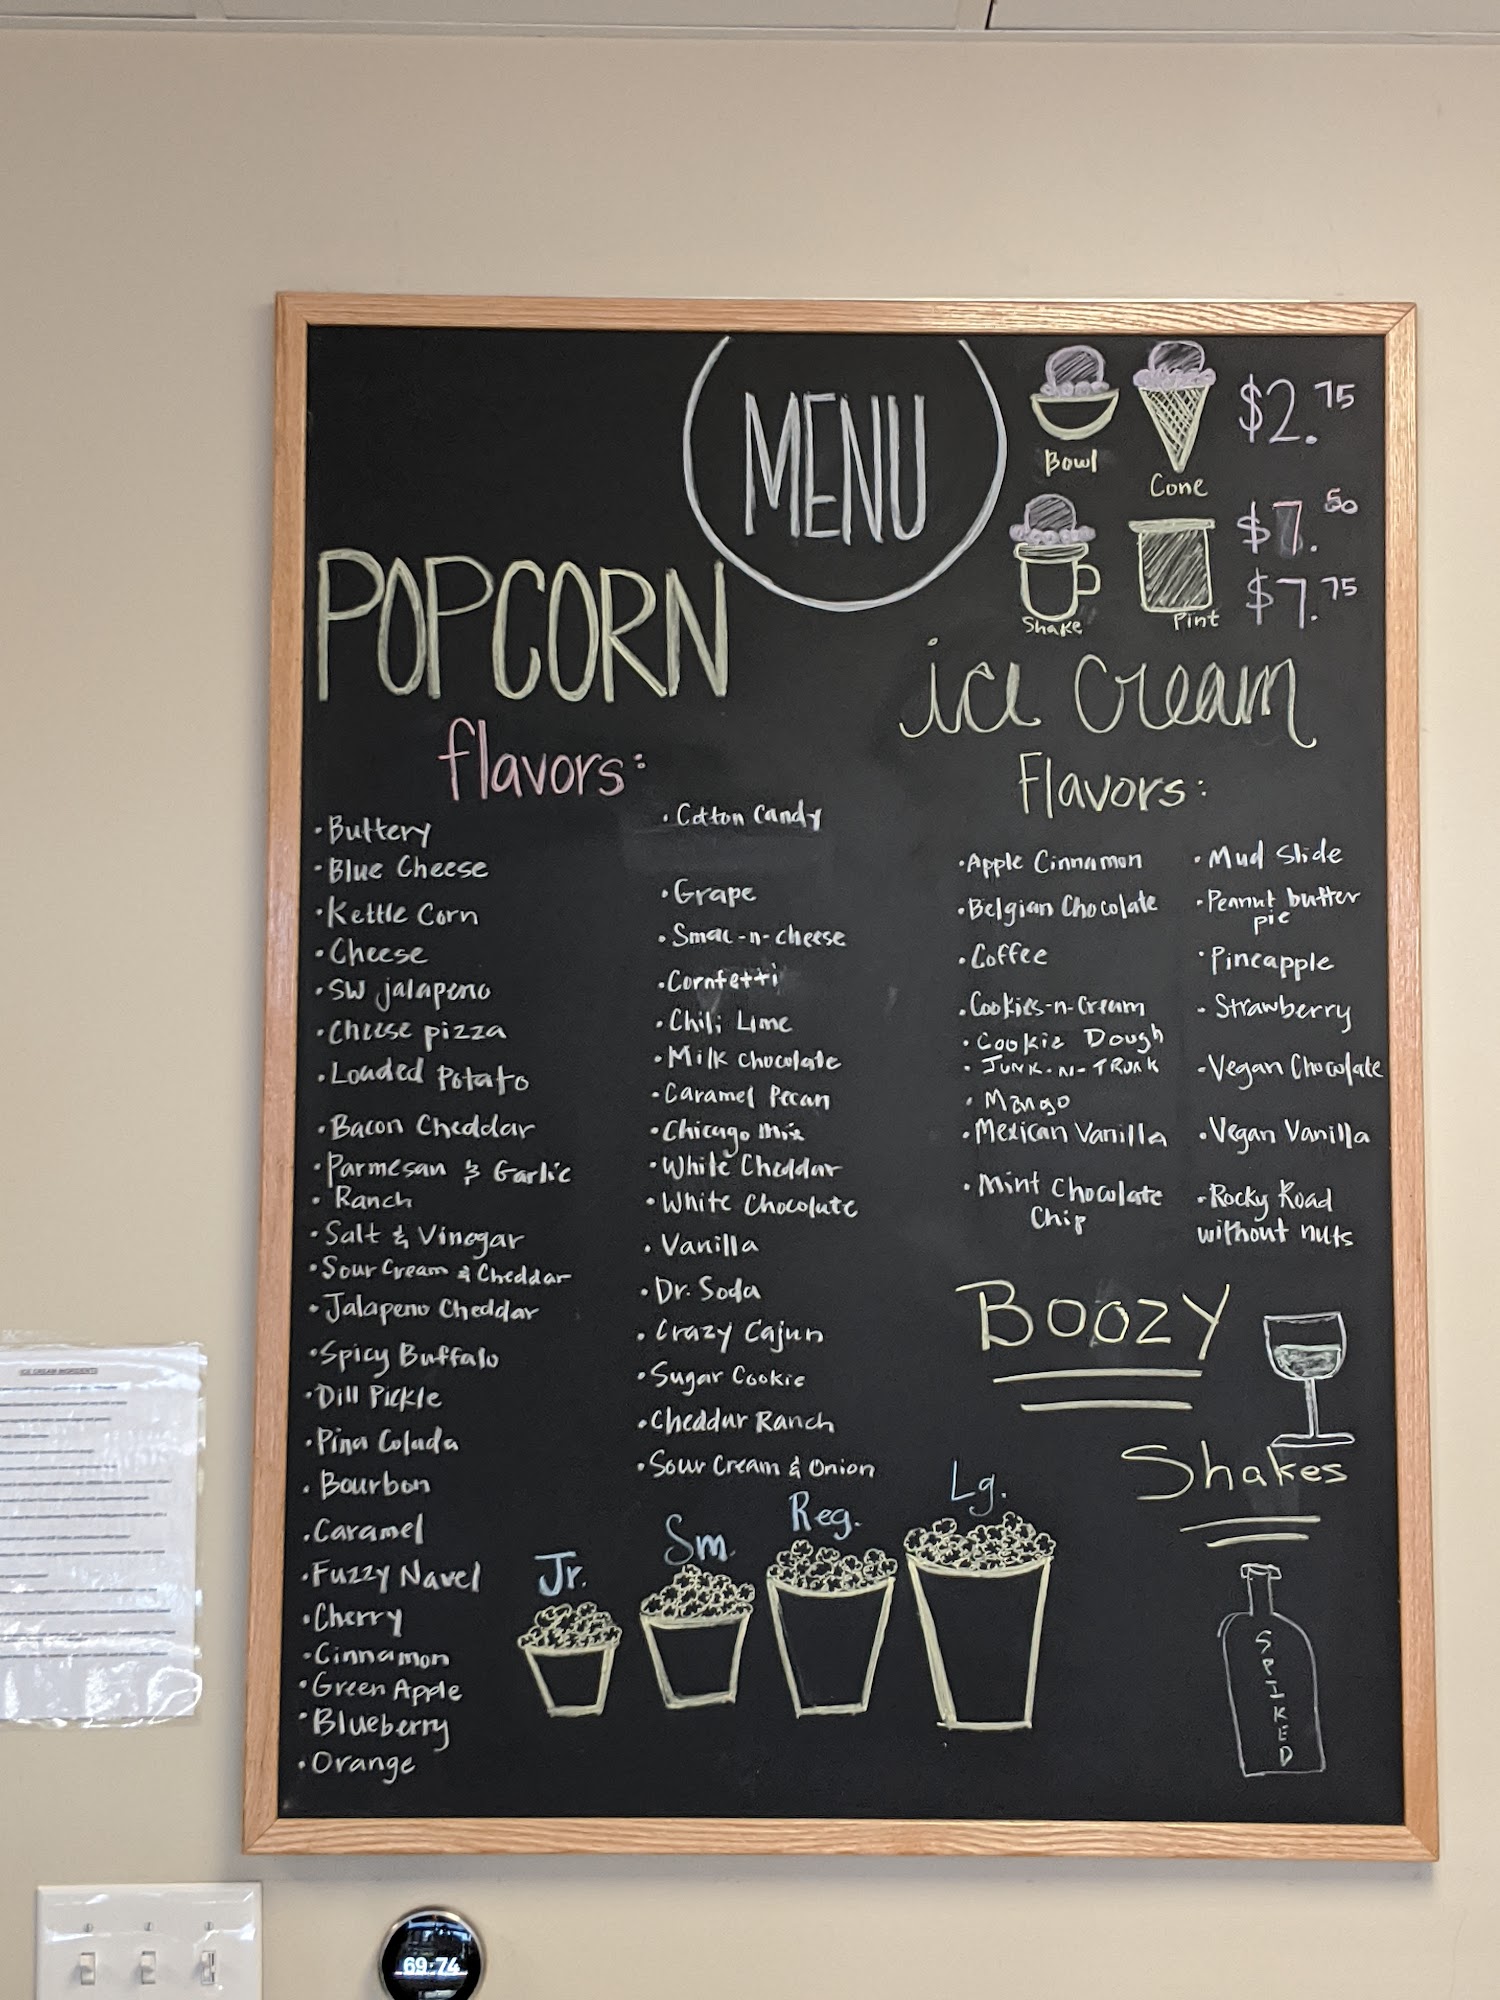 MENU
Bowl
Cone
$2.75
Shake
Pint
$7.50
$7.75
POPCORN
flavors:
• Buttery
• Blue Cheese
• Kettle Corn
• Cheese
• SW jalapeno
• Cheese pizza
• Loaded Potato
• Bacon Cheddar
• Parmesan & Garlic
• Ranch
• Salt & Vinegar
• Sour Cream & Cheddar
• Jalapeno Cheddar
• Spicy Buffalo
• Dill Pickle
• Pina Colada
• Bourbon
• Caramel
• Fuzzy Navel
• Cherry
• Cinnamon
• Green Apple
• Blueberry
• Orange
• Cotton Candy
• Grape
• Smac-n-cheese
• Cornfetti
• Chili Lime
• Milk Chocolate
• Caramel Pecan
• Chicago Mix
• White Cheddar
• White Chocolate
• Vanilla
• Dr. Soda
• Crazy Cajun
• Sugar Cookie
• Cheddar Ranch
• Sour Cream & Onion
Jr.
Sm.
Reg.
Lg.
ice cream
Flavors:
• Apple Cinnamon
• Belgian Chocolate
• Coffee
• Cookies-n-Cream
• Cookie Dough
• JUNK-N-TRUNK
• Mango
• Mexican Vanilla
• Mint Chocolate
Chip
• Mud Slide
• Peanut butter
pie
• Pineapple
- Strawberry
• Vegan Chocolate
• Vegan Vanilla
• Rocky Road
without nuts
BOOZY
Shakes
SPIKED
ICE CREAM INGREDIENTS
69 74